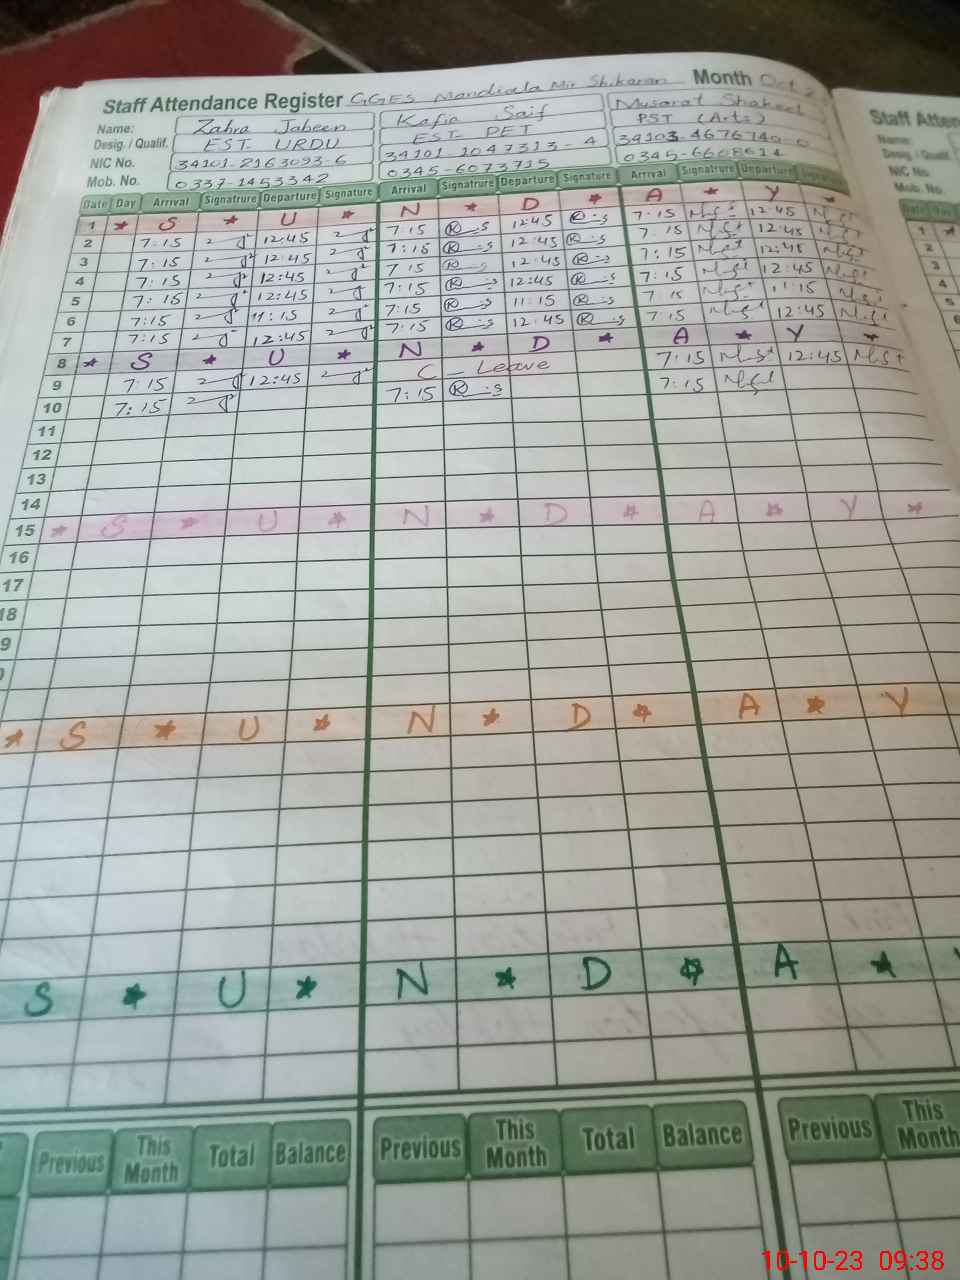 Staff Attendance Register GGES Mandiala Mir Shikaran Month Oct 2
Name: Zahra Jabeen Kafia Saif Musarat Shaheen
Desig. / Qualif. EST. URDU EST. PET PST (Arts)
NIC No. 34101-2163093-6 34101 1047313-4 34103 4676740-0
Mob. No. 0337-1453342 0345-6073715 0345-6608614
Date Day Arrival Signature Departure Signature Arrival Signatrure Departure Signature Arrival Signatrure Departure
1 * S * U * N * D * A * Y *
2 7:15 12:45 7:15 12:45 7:15 12:45
3 7:15 12:45 7:15 12:45 7:15 12:45
4 7:15 12:45 7:15 12:45 7:15 12:45
5 7:15 12:45 7:15 12:45 7:15 12:45
6 7:15 11:15 7:15 11:15 7:15 11:15
7 7:15 12:45 7:15 12:45 7:15 12:45
8 * S * U * N * D * A * Y *
9 7:15 12:45 C - Leave 7:15 12:45
10 7:15 7:15 7:15
11
12
13
14
15 * S * U * N * D * A * Y *
16
17
18
9
* S * U * N * D * A * Y
S * U * N * D * A *
Previous This Month Total Balance Previous This Month Total Balance Previous This Month
Staff Atten
Name:
Desig. / Qualif
NIC No
Mob. No.
1
2
3
4
5
6
10-10-23 09:38